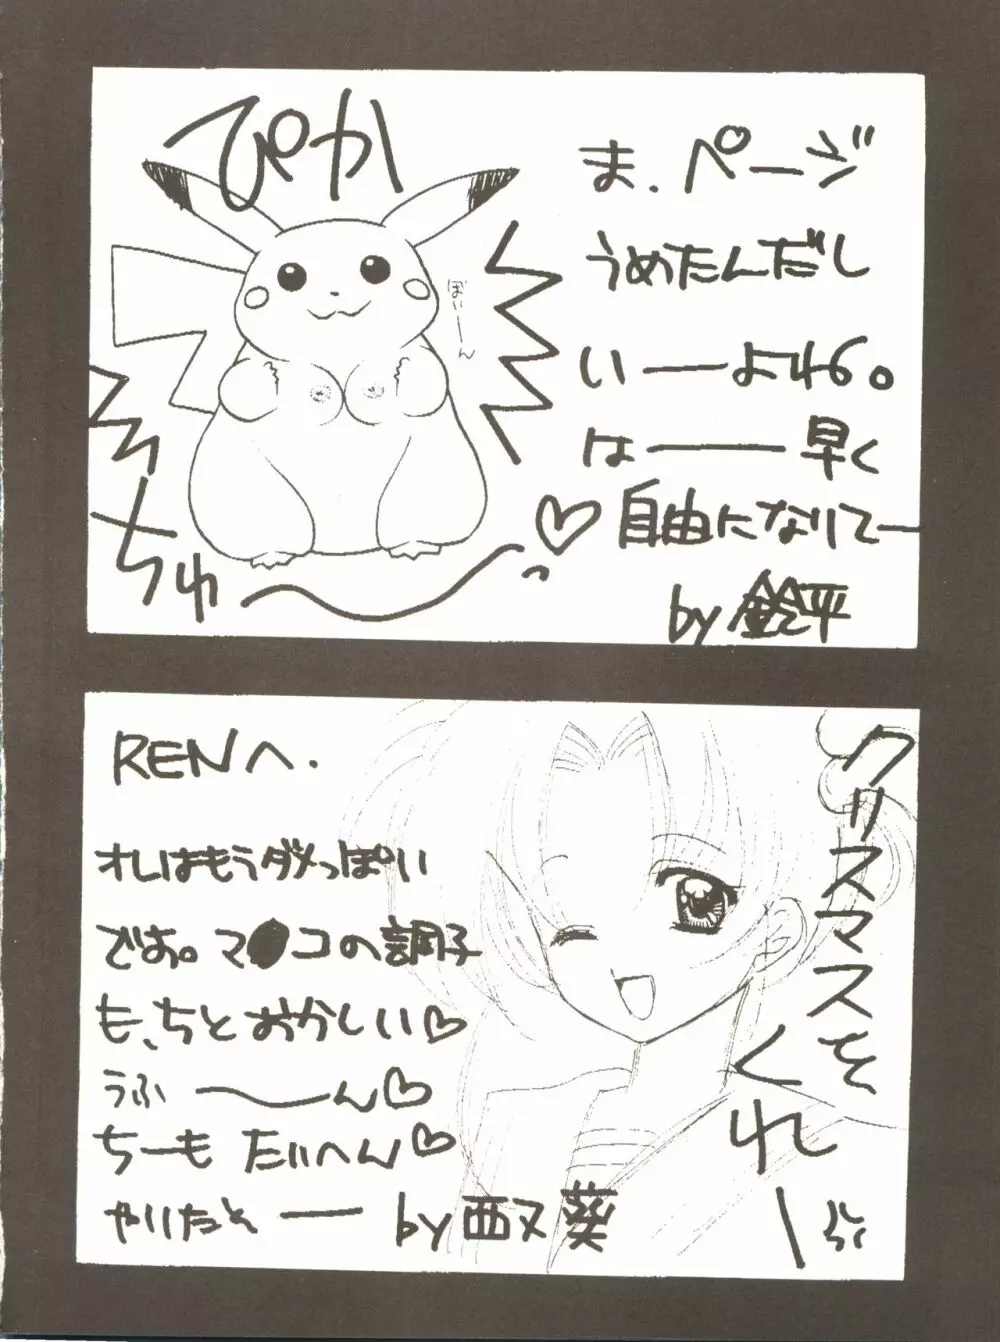 ぴか
ま、ページ
うめたんだし
いーよね。
はー早く
自由になりてー
by 鈴平
ぼいーん
ちゅ
RENへ.
オレはもうダメっぽい
です。マ●コの調子
も、ちとおかしい♡
うふーん♡
ちーも たいへん♡
やいたぞー
by 西又葵
クリスマスを
くれー